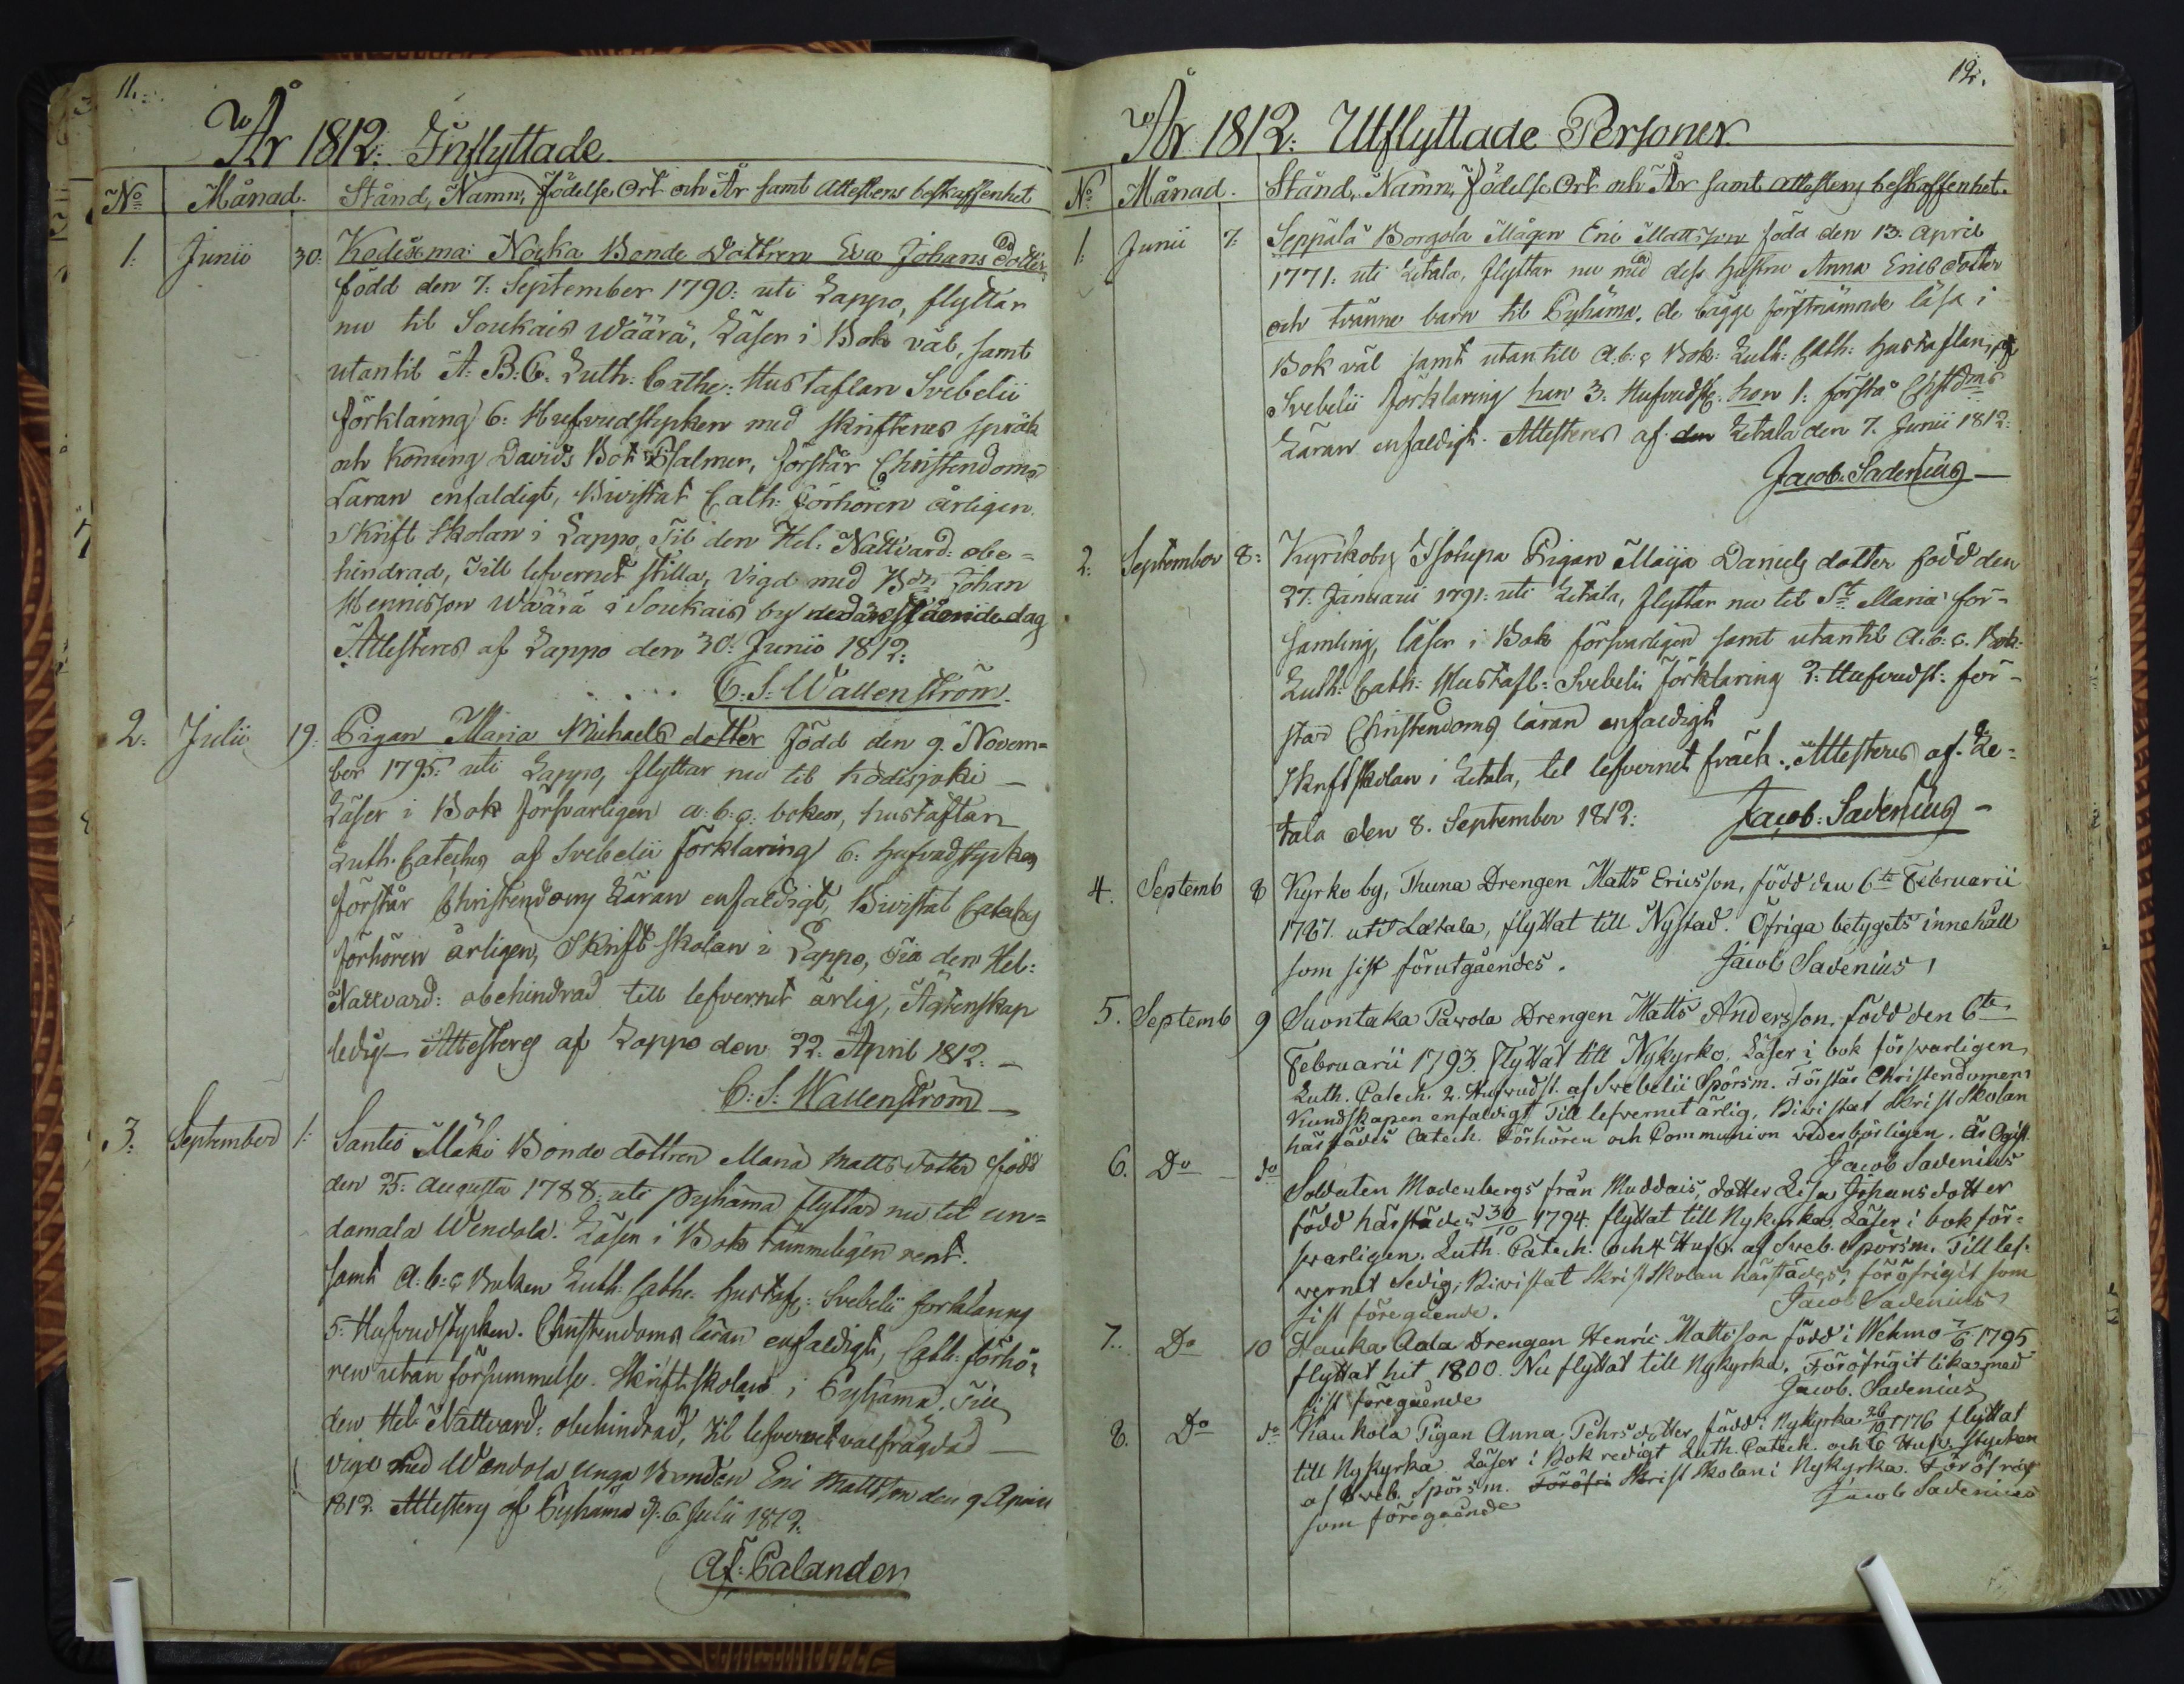 11.
År 1812: Inflyttade.
No Månad. Stånd, Namn, Födelse Ort och År samt attestens beskaffenhet
1. Junii 30. Kodixmai Nocka Bonde Dottren Eva Johans Dotter
född den 7: September 1790: uti Lappo, flyttar
nu til Soukais Wäärä, Läser i Bok väl, samt
utantil A: B: C. Luth: Cathe: Hustaflan Svebelii
förklaring 6: Hufvudstycken med skriftenes språk
och Konung Davids Bot Psalmer, forstår Christendoms
Läran enfaldigt, Bivistat Cath: Förhören årligen.
Skrift Skolan i Lappo, Til den Hel: Nattvard: obe=
hindrad, Till lefvernet stilla, Vigd med Bdn Johan
Hennisson Wäärä i Soukais by nedanstående dag
Attesteras af Lappo den 30: Junii 1812:
C: S: Wallenström.
2. Julii 19: Pigan Maria Michaels dotter född den 9. Novem=
ber 1795: uti Lappo, flyttar nu til kodisjoki —
Läser i Bok försvarligen a: b: c: boken, hustaflan
Luth. Cateches af Svebelii förklaring 6: Hufvudstycken
förstår Christendoms Läran enfaldigt, Bivistat Cateches
förhören årligen, Skrift skolan i Lappo, Till den Hel:
Nattvard: obehindrad till lefvernet ärlig, Ägtenskap
ledig — Attesteras af Lappo den 22. April 1812: —
C: S: Wallenström —
3. September 1: Santio Mäki Bonde dottren Maria Matts dotter född
den 25: Augusti 1788: uti Pyhäma flyttad nu til un=
damala Wendola. Läser i Bok tämmeligen rent.
samt a: b: c Boken Luth: Cathe: Hustafl: Svebelii forklaring
5: Hufvudstycken. Christendoms läran enfaldigt, Cath: förhö=
ren utan försummelse. Skriftskolan i Pyhäma. Till
den Hel: Nattvard: obehindrad, til lefvernet välfrägdad —
vigd med Wendola Unga Bonden Eric Mattsson den 9 April
1812. Attesteras af Pyhäma d. 6. Julii 1812.
Af: Calander
12.
År 1812: Utflyttade Personer
No Månad. Stånd, Namn, Födelse Ort och År samt attestens beskaffenhet.
1: Junii 7: Seppälä Borgola Mågen Eric Mattsson född den 13. April
1771: uti Letala, flyttar nu med dess hustru Anna Erics dotter
och tvänne barn til Pyhäma. de bägge förstnämnde läsa i
Bok väl samt utantill a: b: c Bok: Luth: Cath: hustaflan, af
Svebelii förklaring han 3: Hufvudst: hon 1: förstå Chstdms
Läran enfaldigt. Attesteras af den Letala den 7. Junii 1812:
Jacob: Sadenius —
2. September 8: Kyrckoby Isotupa Pigan Maija Daniels dotter född den
27: Januarii 1791: uti Letala, flyttar nu til St. Maria för=
samling, läser i Bok försvarligen samt utantil a: b: c. Bok:
Luth: Cath: Hustafl: Svebelii förklaring 2: Hufvudst: för=
står Christendoms läran enfaldigt
Skriftskolan i Letala, til lefvernet fräck. Attesteras af Le=
tala den 8. September 1812: Jacob: Sadenius —
4. Septemb 8 Kyrko by, Thuna Drengen Matts Ericsson, född den 6te Februarii
1787. uti Letala, flyttat till Nystad. Öfriga betygets innehåll
som sist förutgåendes. Jacob Sadenius
5. Septemb 9 Suontaka Pawola Drengen Matts Andersson född den 6te
Februarii 1793. Flyttat till Nykyrko. Läser i bok försvarligen,
Luth. Catech. 2. Hufvudst. af Svebelii Spörsm. Förstår Christendomens
Kundskapen enfaldigt Till lefvernet ärlig, Bivistat Skriftskolan
härstädes Catech. Förhören och Communion vederbörligen. Är Ogift.
Jacob Sadenius
6. Do do Soldaten Modenbergs från Muddais, dotter Lisa Johansdotter
född härstädes 30/10 1794. flyttat till Nykyrka, Läser i bok för=
svarligen. Luth. Catech. och 4 Hufv. af Sveb. Spörsm. Till lef=
vernet Sedig. Bivistat Skriftskolan härstädes, föröfrigit som
sist föregående. Jacob Sadenius
7. Do 10 Hauka Aala Drengen Henric Mattsson född i Wehmo 7/6 1795
flyttat hit 1800. Nu flyttat till Nykyrka. Föröfrigit lika med
sist föregående Jacob. Sadenius
8. Do do Kaukola Pigan Anna Pehrsdotter, född i Nykyrka 26/10 1776 flyttat
till Nykyrka Läser i Bok redigt Luth. Catech. och 6 Hufv. stycken
af Sveb. Spörsm. Föröfri Skriftskolan i Nykyrka. Föröfrigt
som föregående Jacob Sadenius